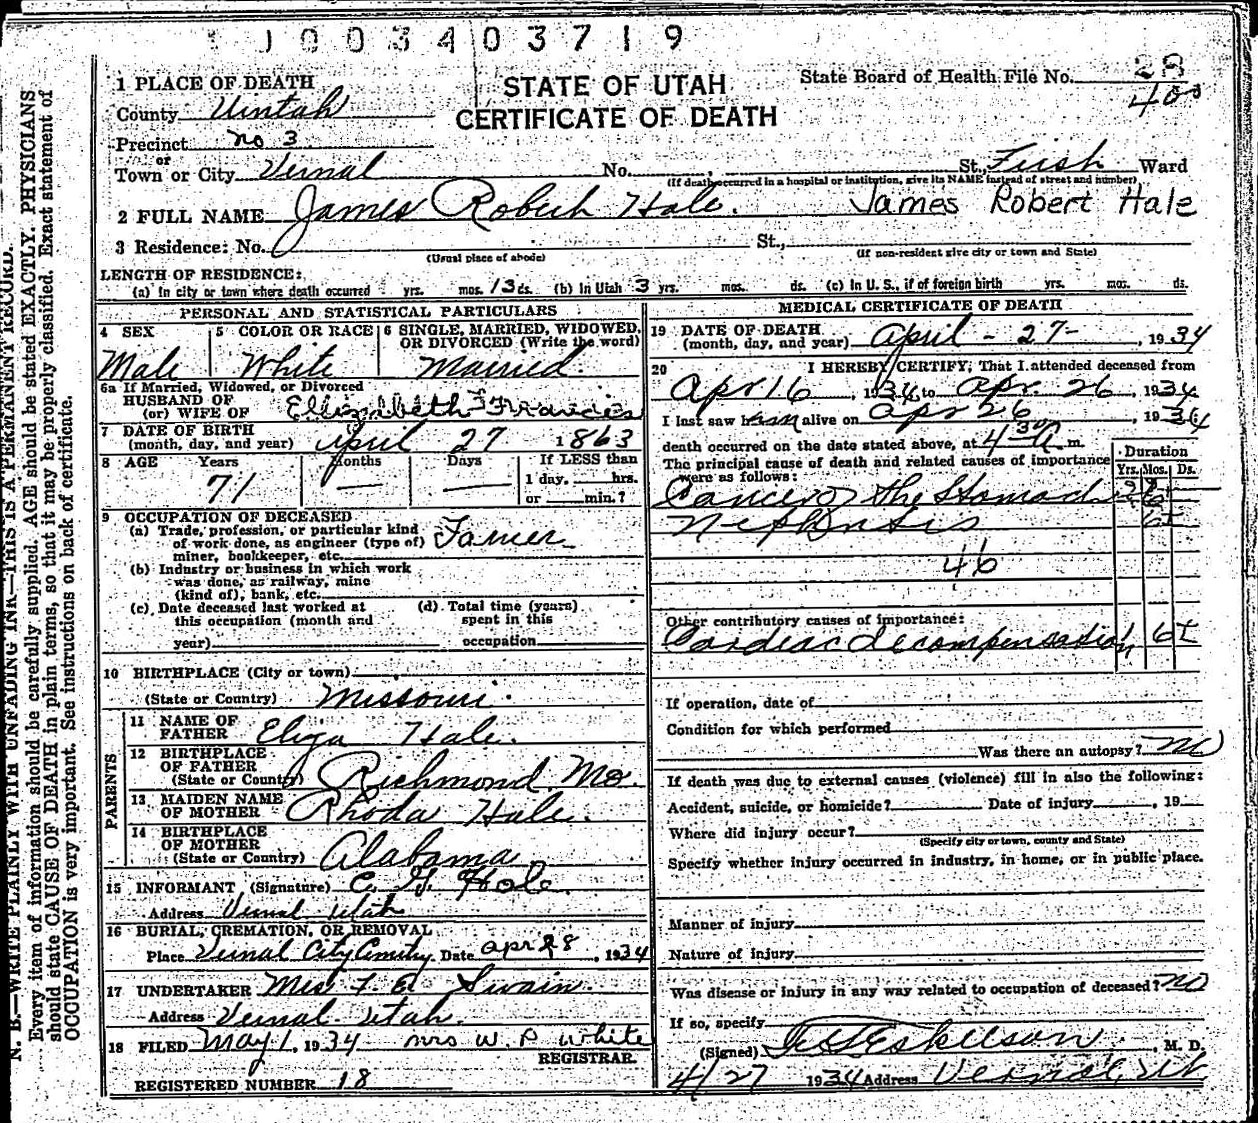 1 0 0 3 4 0 3 7 1 9
STATE OF UTAH
CERTIFICATE OF DEATH
State Board of Health File No. 28
400
1 PLACE OF DEATH
County Uintah
Precinct no 3
or
Town or City Vernal No. St., First Ward
(If death occurred in a hospital or institution, give its NAME instead of street and number)
2 FULL NAME James Robert Hale. James Robert Hale
3 Residence: No. St.,
(Usual place of abode) (If non-resident give city or town and State)
LENGTH OF RESIDENCE:
(a) In city or town where death occurred yrs. mos. 13 ds. (b) In Utah 3 yrs. mos. ds. (c) In U. S., if of foreign birth yrs. mos. ds.
PERSONAL AND STATISTICAL PARTICULARS
4 SEX 5 COLOR OR RACE 6 SINGLE, MARRIED, WIDOWED, OR DIVORCED (Write the word)
Male White Married.
6a If Married, Widowed, or Divorced
HUSBAND OF
(or) WIFE OF Ellizabeth Francis
7 DATE OF BIRTH
(month, day, and year) April 27 1863
8 AGE Years Months Days If LESS than
1 day, hrs.
71 — — or min.?
9 OCCUPATION OF DECEASED
(a) Trade, profession, or particular kind
of work done, as engineer (type of) Famer
miner, bookkeeper, etc.
(b) Industry or business in which work
was done, as railway, mine
(kind of), bank, etc.
(c) Date deceased last worked at (d) Total time (years)
this occupation (month and spent in this
year) occupation
10 BIRTHPLACE (City or town)
(State or Country) Missouri.
PARENTS
11 NAME OF
FATHER Eliza Hale.
12 BIRTHPLACE
OF FATHER
(State or Country) Richmond Mo.
13 MAIDEN NAME
OF MOTHER Rhoda Hale.
14 BIRTHPLACE
OF MOTHER
(State or Country) Alabama
15 INFORMANT (Signature) C. G. Hale.
Address Vernal Utah
16 BURIAL, CREMATION, OR REMOVAL
Place Vernal City Cemetry Date apr 28, 1934
17 UNDERTAKER Swain.
Address Vernal Utah.
18 FILED May 1, 1934 Mrs W. P White
REGISTRAR.
REGISTERED NUMBER 18
MEDICAL CERTIFICATE OF DEATH
19 DATE OF DEATH
(month, day, and year) April - 27 - , 1934
20 I HEREBY CERTIFY, That I attended deceased from
Apr 16, 1934, to Apr. 26, 1934
I last saw him alive on apr 26, 1934
death occurred on the date stated above, at 4 30 A m.
The principal cause of death and related causes of importance
were as follows:
Duration
Yrs. Mos. Ds.
Cancer of the Stomach
Nephritis
46
Other contributory causes of importance:
Cardiac decompensation
If operation, date of
Condition for which performed
Was there an autopsy? no
If death was due to external causes (violence) fill in also the following:
Accident, suicide, or homicide? Date of injury , 19
Where did injury occur?
(Specify city or town, county and State)
Specify whether injury occurred in industry, in home, or in public place.
Manner of injury
Nature of injury
Was disease or injury in any way related to occupation of deceased? no
If so, specify
(Signed) Eskelson, M. D.
4/27 1934 Address Vernal, Ut
N. B.—WRITE PLAINLY WITH UNFADING INK—THIS IS A PERMANENT RECORD.
Every item of information should be carefully supplied. AGE should be stated EXACTLY. PHYSICIANS
should state CAUSE OF DEATH in plain terms, so that it may be properly classified. Exact statement of
OCCUPATION is very important. See instructions on back of certificate.